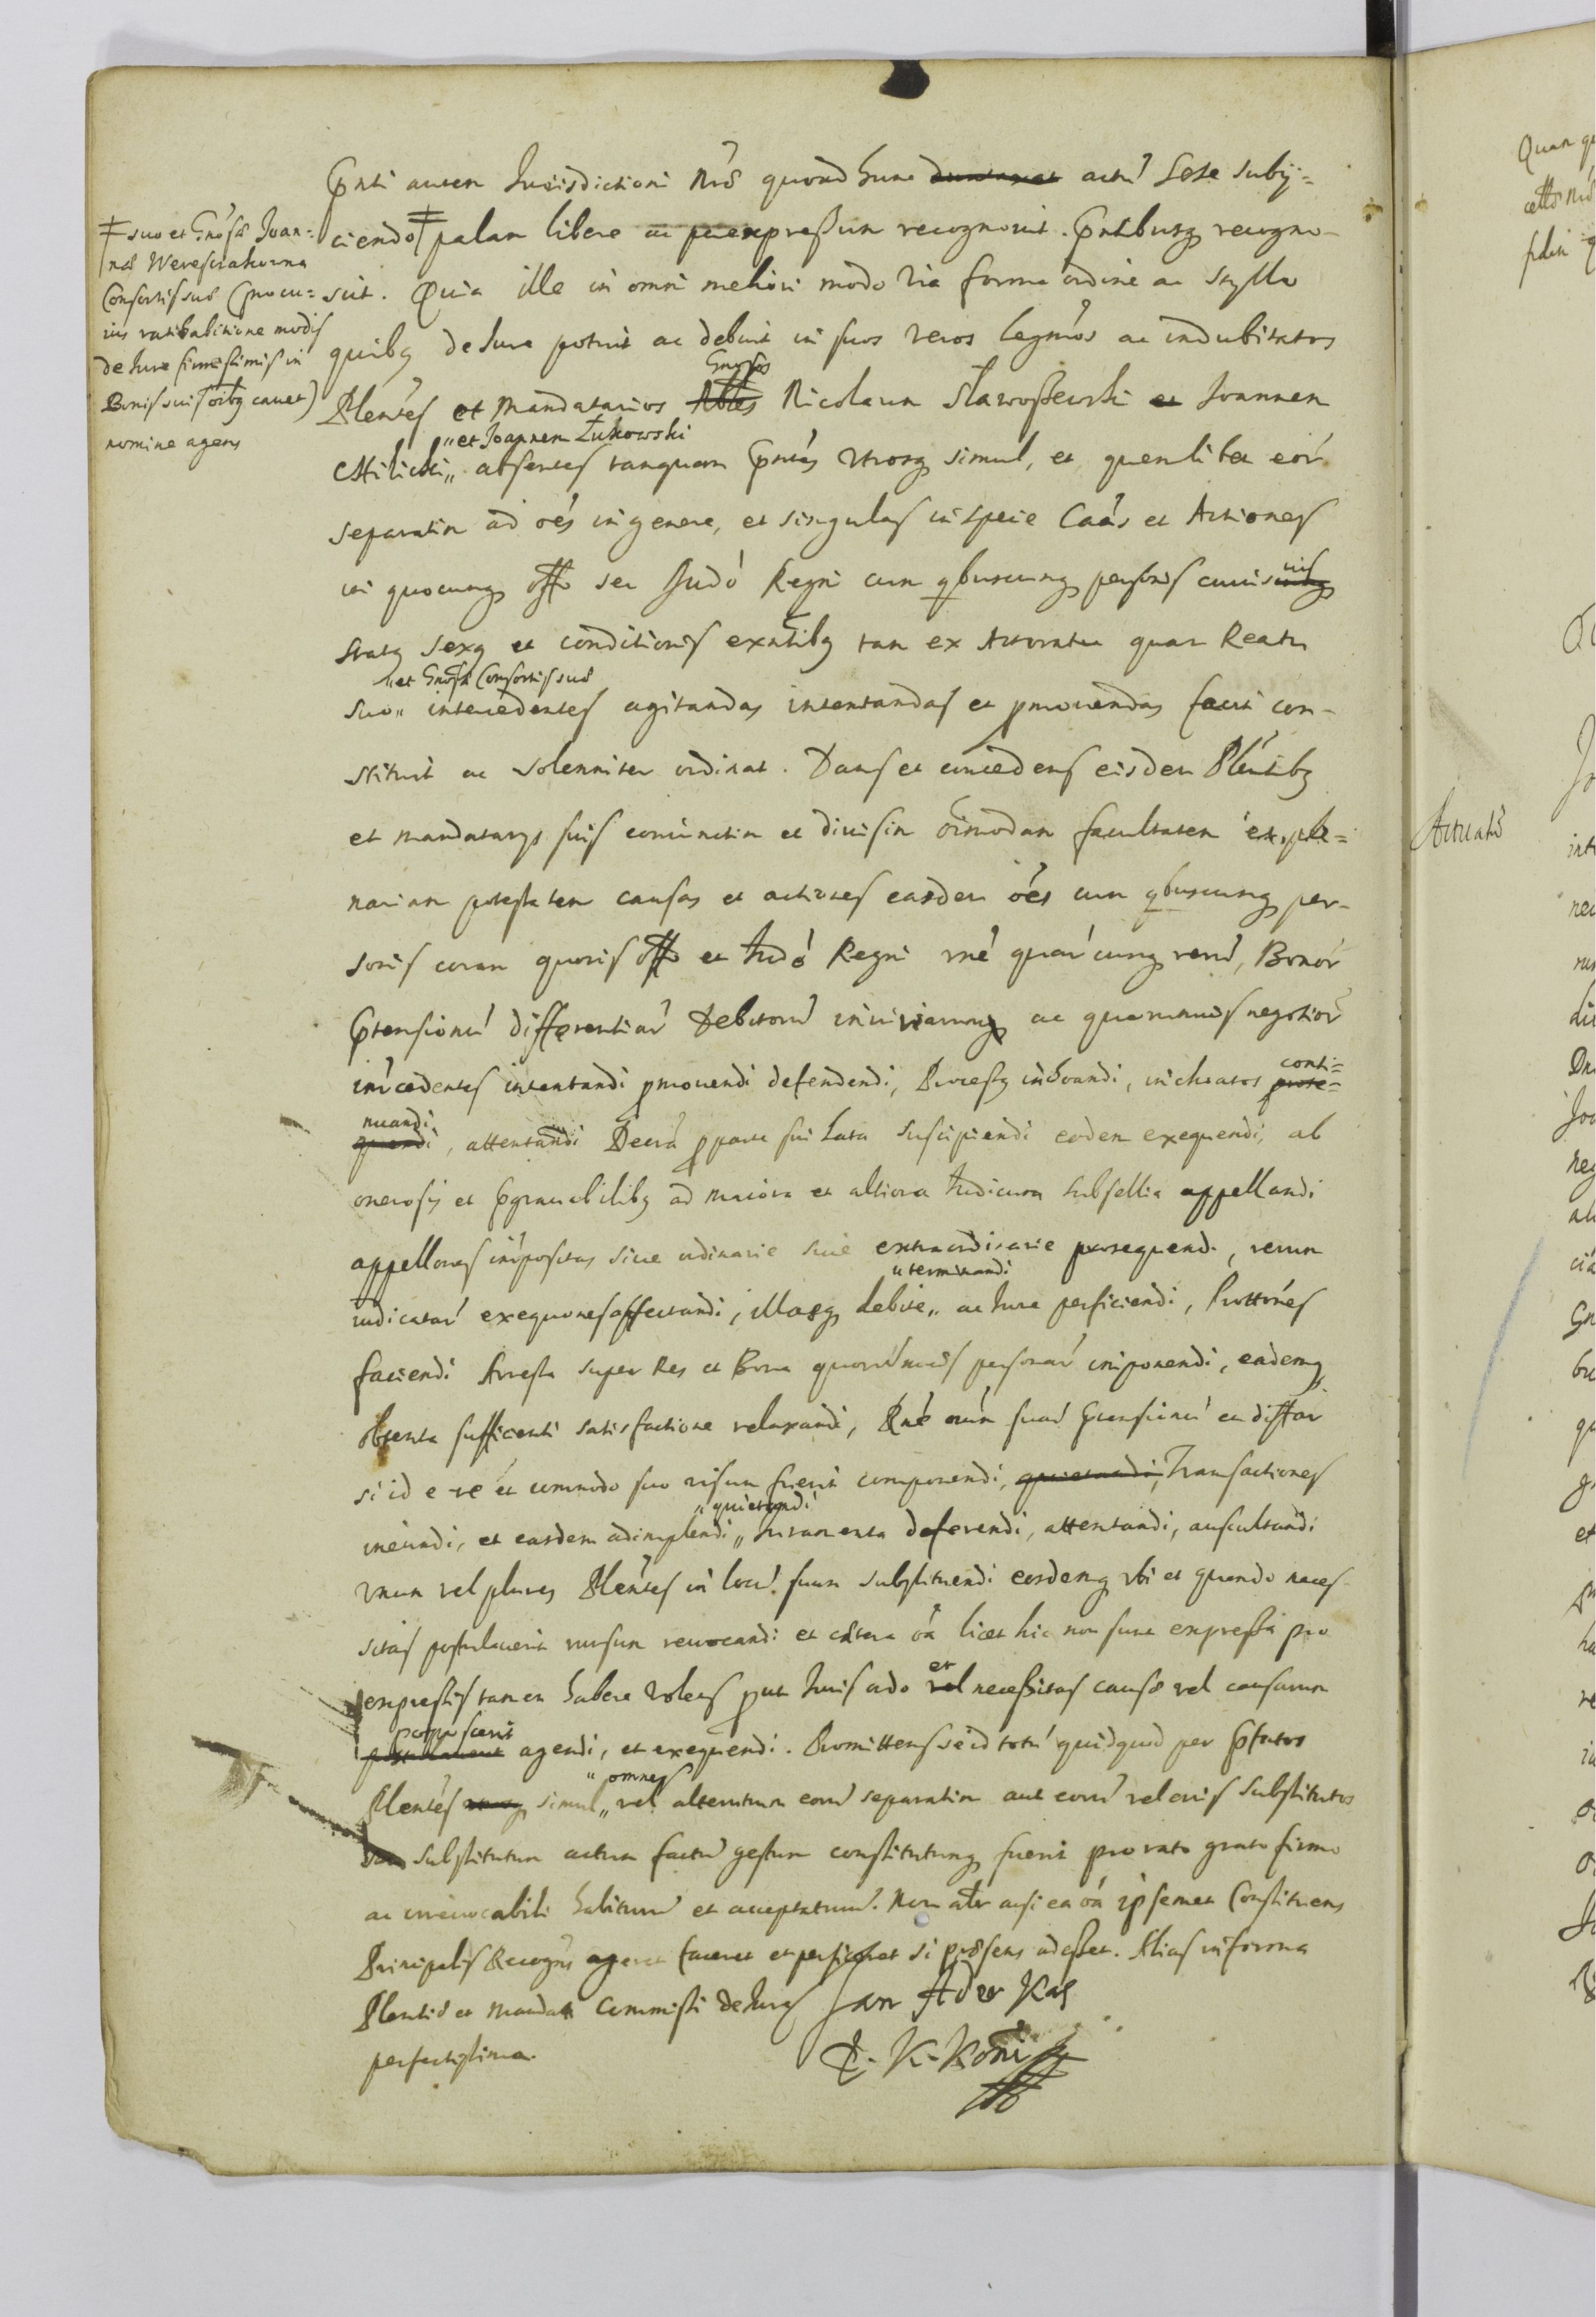 Pnti autem Jurisdictioni Nrae quoad hunc duntaxat actu sese subij=
ciendo ‡ palam libere ac per expressum recognovit. Pntibusq recogno-
scit. Quia ille in omni meliori modo via forma ordine ac styllo
quibq de Jure potuit ac debuit in suos veros legmos ac indubitatos
Gnosos
Plentes et Mandatarios Nobles Nicolaum Slawoszewski et Joannem
„et Joannem Żukowski
Milicki„ absentes tanquam Pntes utrosq simul, et quemlibet eor
separatim ad oes in genere, et singulas in specie Caas et Actiones
in quocunq offo seu Judo Regni cum qbuscunq personis cuiusvis
statq sexq et conditionis exntibq tam ex Actoratu quam Reatu
„et Gnosae Consortis suae
suo„ intercedentes agitandas intentandas et pmovendas facit con-
stituit ac solenniter ordinat. Dans et concedens eisdem Plentibq
et mandatarys suis coniunctim et divisim oimodam facultatem et ple=
nariam potestatem causas et actiones easdem oes cum qbuscunq per-
sonis coram quovis offo et Judo Regni rne quarcunq reru, Bonor
Ptensionu differentiar Debitoru iniuriarumq ac quorumvis negotior
intcedentes intentandi pmovendi defendendi, Processq inchoandi, inchoatos prose-
conti=
nuandi
quendi, attentandi Decreta pparte sui lata suscipiendi eodem exequendi, ab
onerosis et Pgravabilibq ad maiora et altiora Judicum subsellia appellandi
appellones interpositas sive ordinarie sive extraordinarie prosequendi, rerum
„terminandi
iudicatar exequones affectandi, illasq debite„ ac Jure perficiendi, Prottones
faciendi Arresta super Res et Bona quorumvis personar imponendi, eademq
obtenta sufficienti satisfactione relaxandi, Rne oium suar Ptensionu ac differ
si id e re et commodo suo visum fuerit componendi, quietandi, Transactiones
„quietandi
ineundi, et easdem adimplendi„ Juramenta deferendi, attentandi, auscultandi
unum vel plures Plentes in locu suum substituendi eosdemq ubi et quando neces-
sitas postulaverit rursum revocandi et caetera oa licet hic non sunt expressa pro
et
expressis tamen habere volens put Juris ordo vel necessitas causae vel causarum
poposcerit
postulaverit agendi, et exequendi. Promittens se id totu quidquid per Pfatos
„omnes
Plentes utrosq simul„ vel alterutrum eoru separatim aut eoru vel eius substitutos
seu substitutum actum factu gestum constitutumq fuerit pro rato grato firmo
ac irrevocabili habituru et acceptaturu. Non aliter acsi ea oa ipsemet Constituens
Principalis Recogns ageret faceret et perficeret si praesens adesset. Alias in forma
Plentiae et Mandati Commissi de Jure
perfectissima.
‡ suo et Gnosae Joan=
nae Wereszczakowna
Consortis suae (pro cu=
ius ratihabitione modis
de Jure firmissimis in
Bonis suis oibq cavet)
nomine agens
Jan Ader Kas
Actuatu